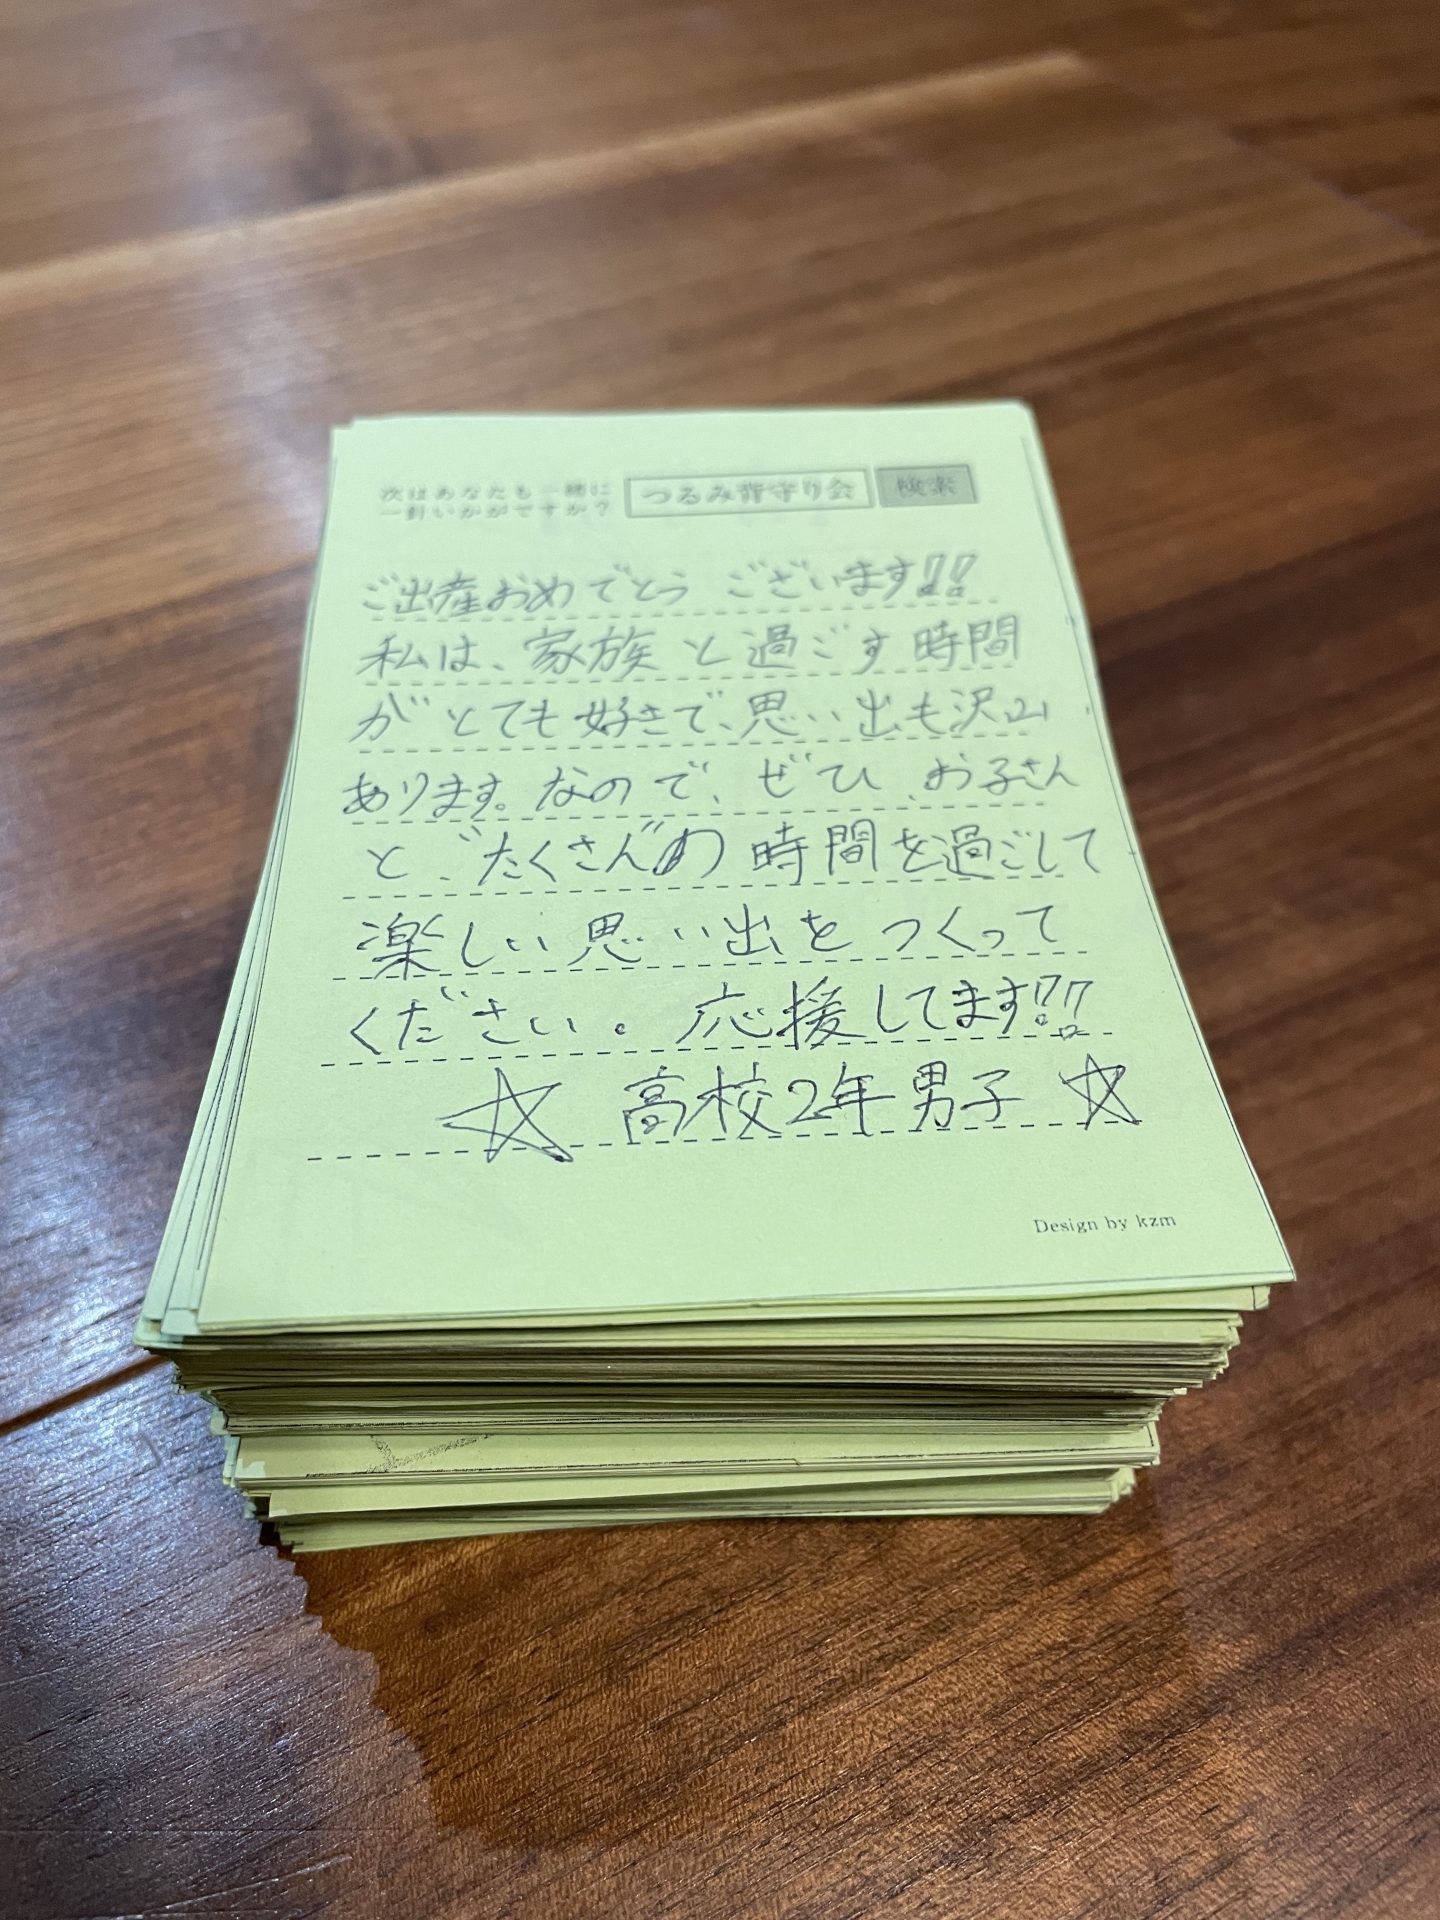 次はあなたも一緒に
一針いかがですか？
つるみ背守り会 検索
ご出産おめでとうございます!!
私は、家族と過ごす時間
がとても好きで、思い出も沢山
あります。なので、ぜひ、お子さん
と、たくさんの時間を過ごして
楽しい思い出をつくって
ください。応援してます!!
☆ 高校2年男子 ☆
Design by kzm